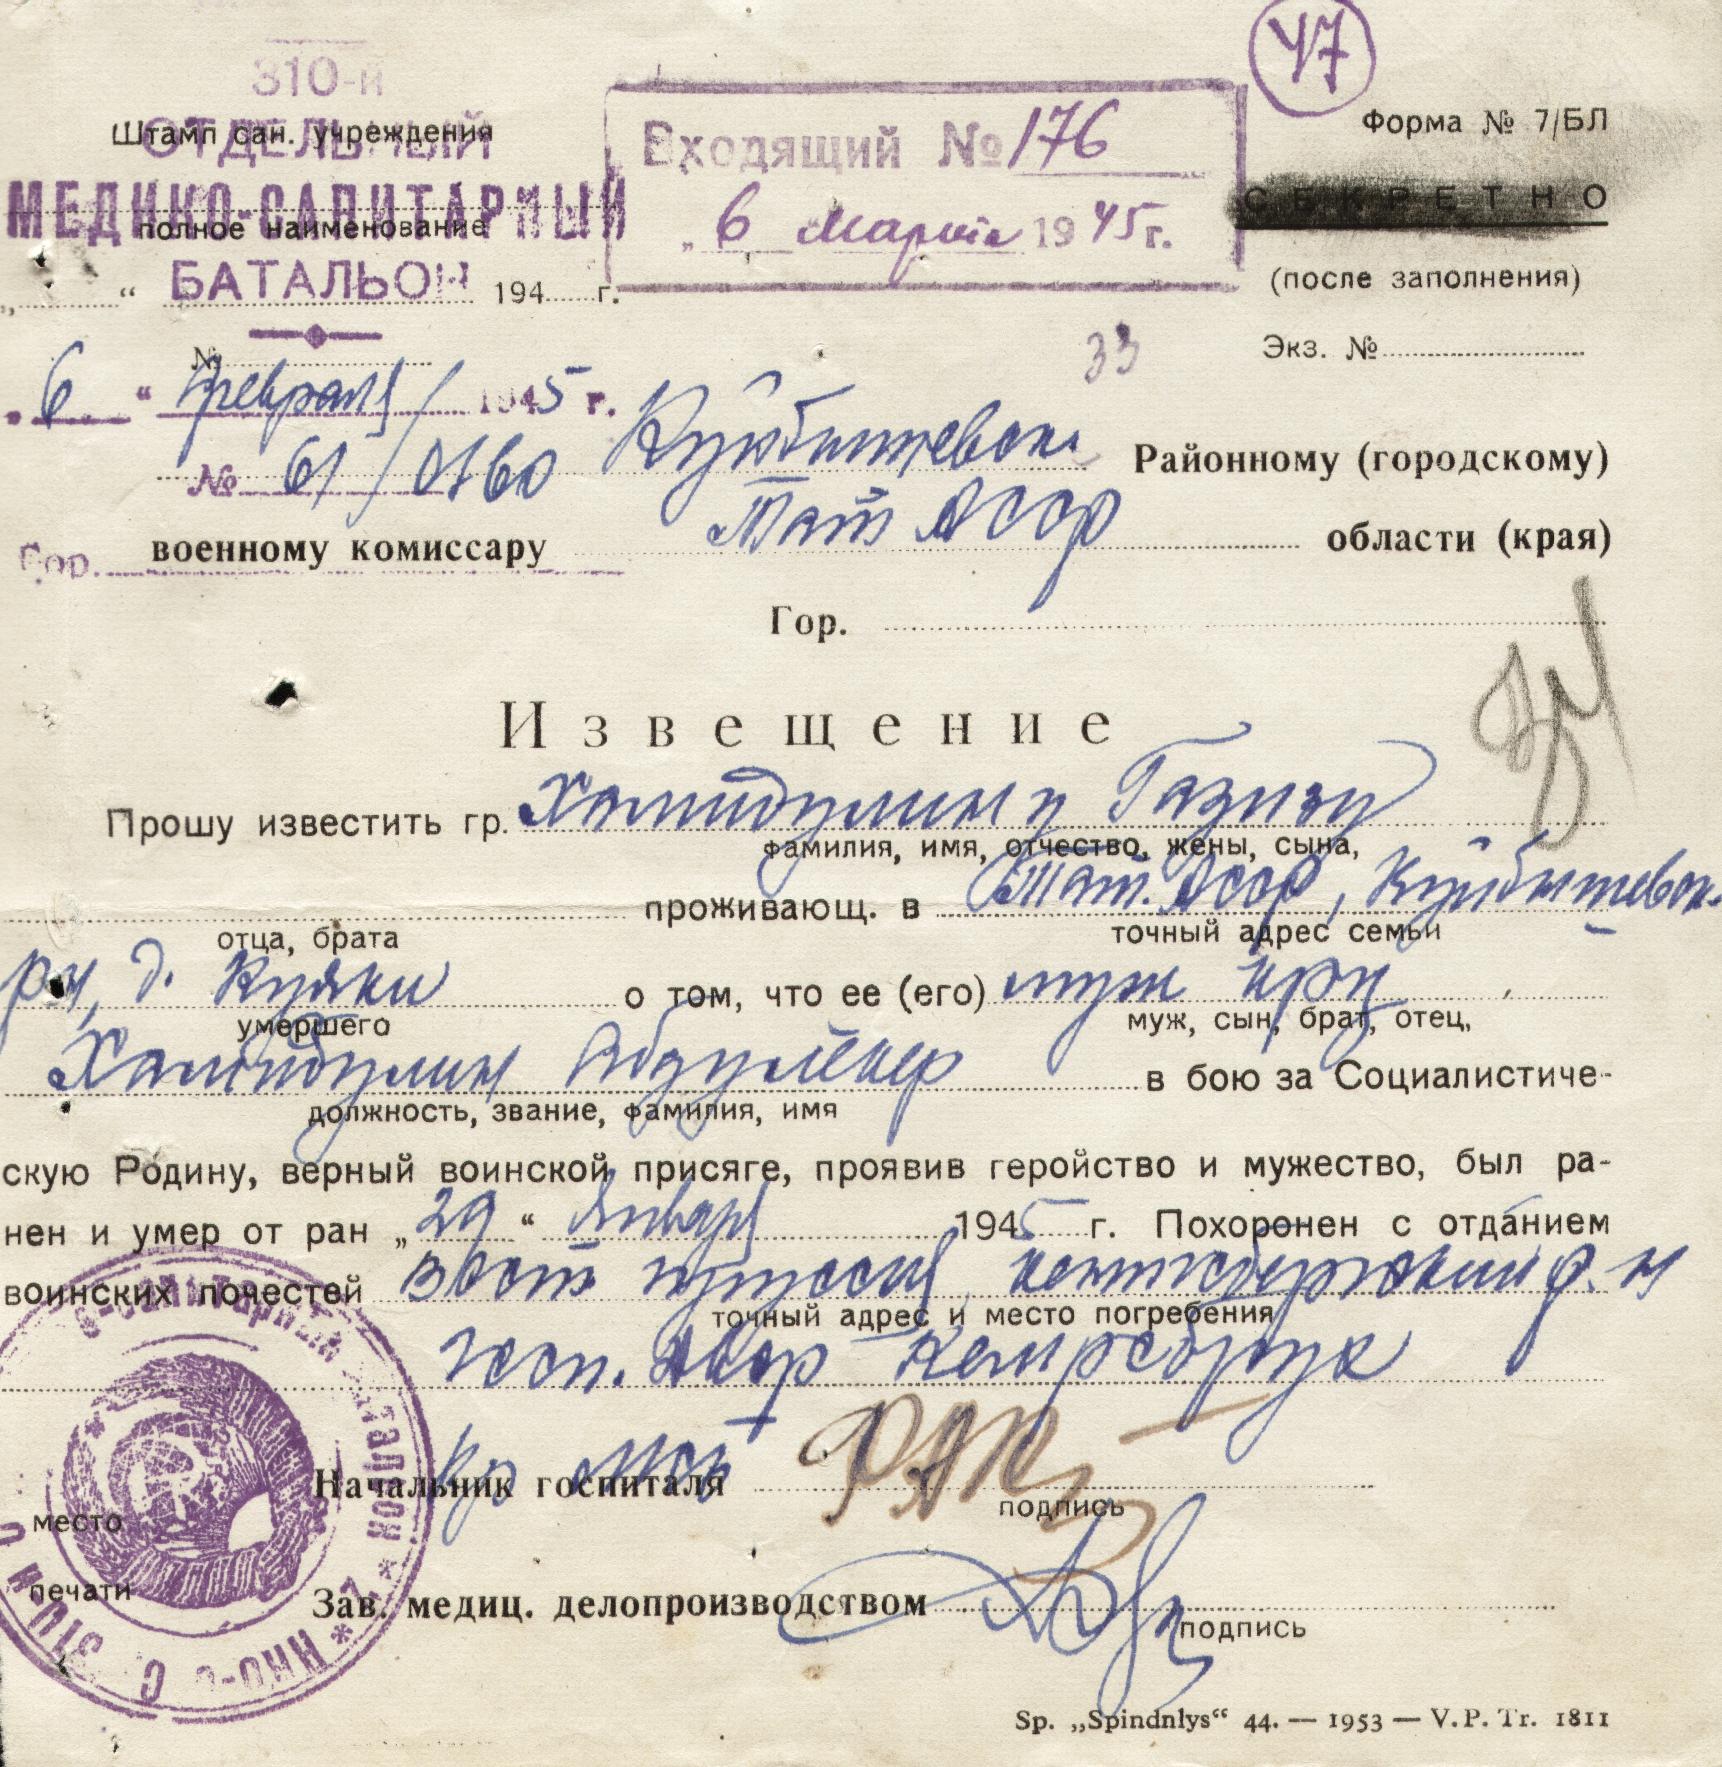 47
310-й
Штамп сан. учреждения
ОТДЕЛЬНЫЙ
Входящий № 176
Форма № 7/БЛ
СЕКРЕТНО
МЕДИКО-САНИТАРНЫЙ
полное наименование
„ 6 марта 1945 г.
(после заполнения)
„ “ БАТАЛЬОН 194 г.
№
33
Экз. №
„ 6 “ февраля 1945 г.
№ 61/0160
Куйбышевск. Районному (городскому)
Гор. военному комиссару Тат АССР области (края)
Гор.
Извещение
Прошу известить гр. Хамидулину Газизу
фамилия, имя, отчество, жены, сына,
проживающ. в Тат. АССР, Куйбышевск.
отца, брата точный адрес семьи
рн, д. Куяки о том, что ее (его) муж кр-ц
умершего муж, сын, брат, отец,
Хамидулин в бою за Социалистиче-
должность, звание, фамилия, имя
скую Родину, верный воинской присяге, проявив геройство и мужество, был ра-
нен и умер от ран „ 29 “ января 1945 г. Похоронен с отданием
воинских почестей Вост. Пруссия,
точный адрес и место погребения
госп. двор
Начальник госпиталя
подпись
место
печати
Зав. медиц. делопроизводством
подпись
Sp. „Spindulys“ 44. — 1953 — V. P. Tr. 1811